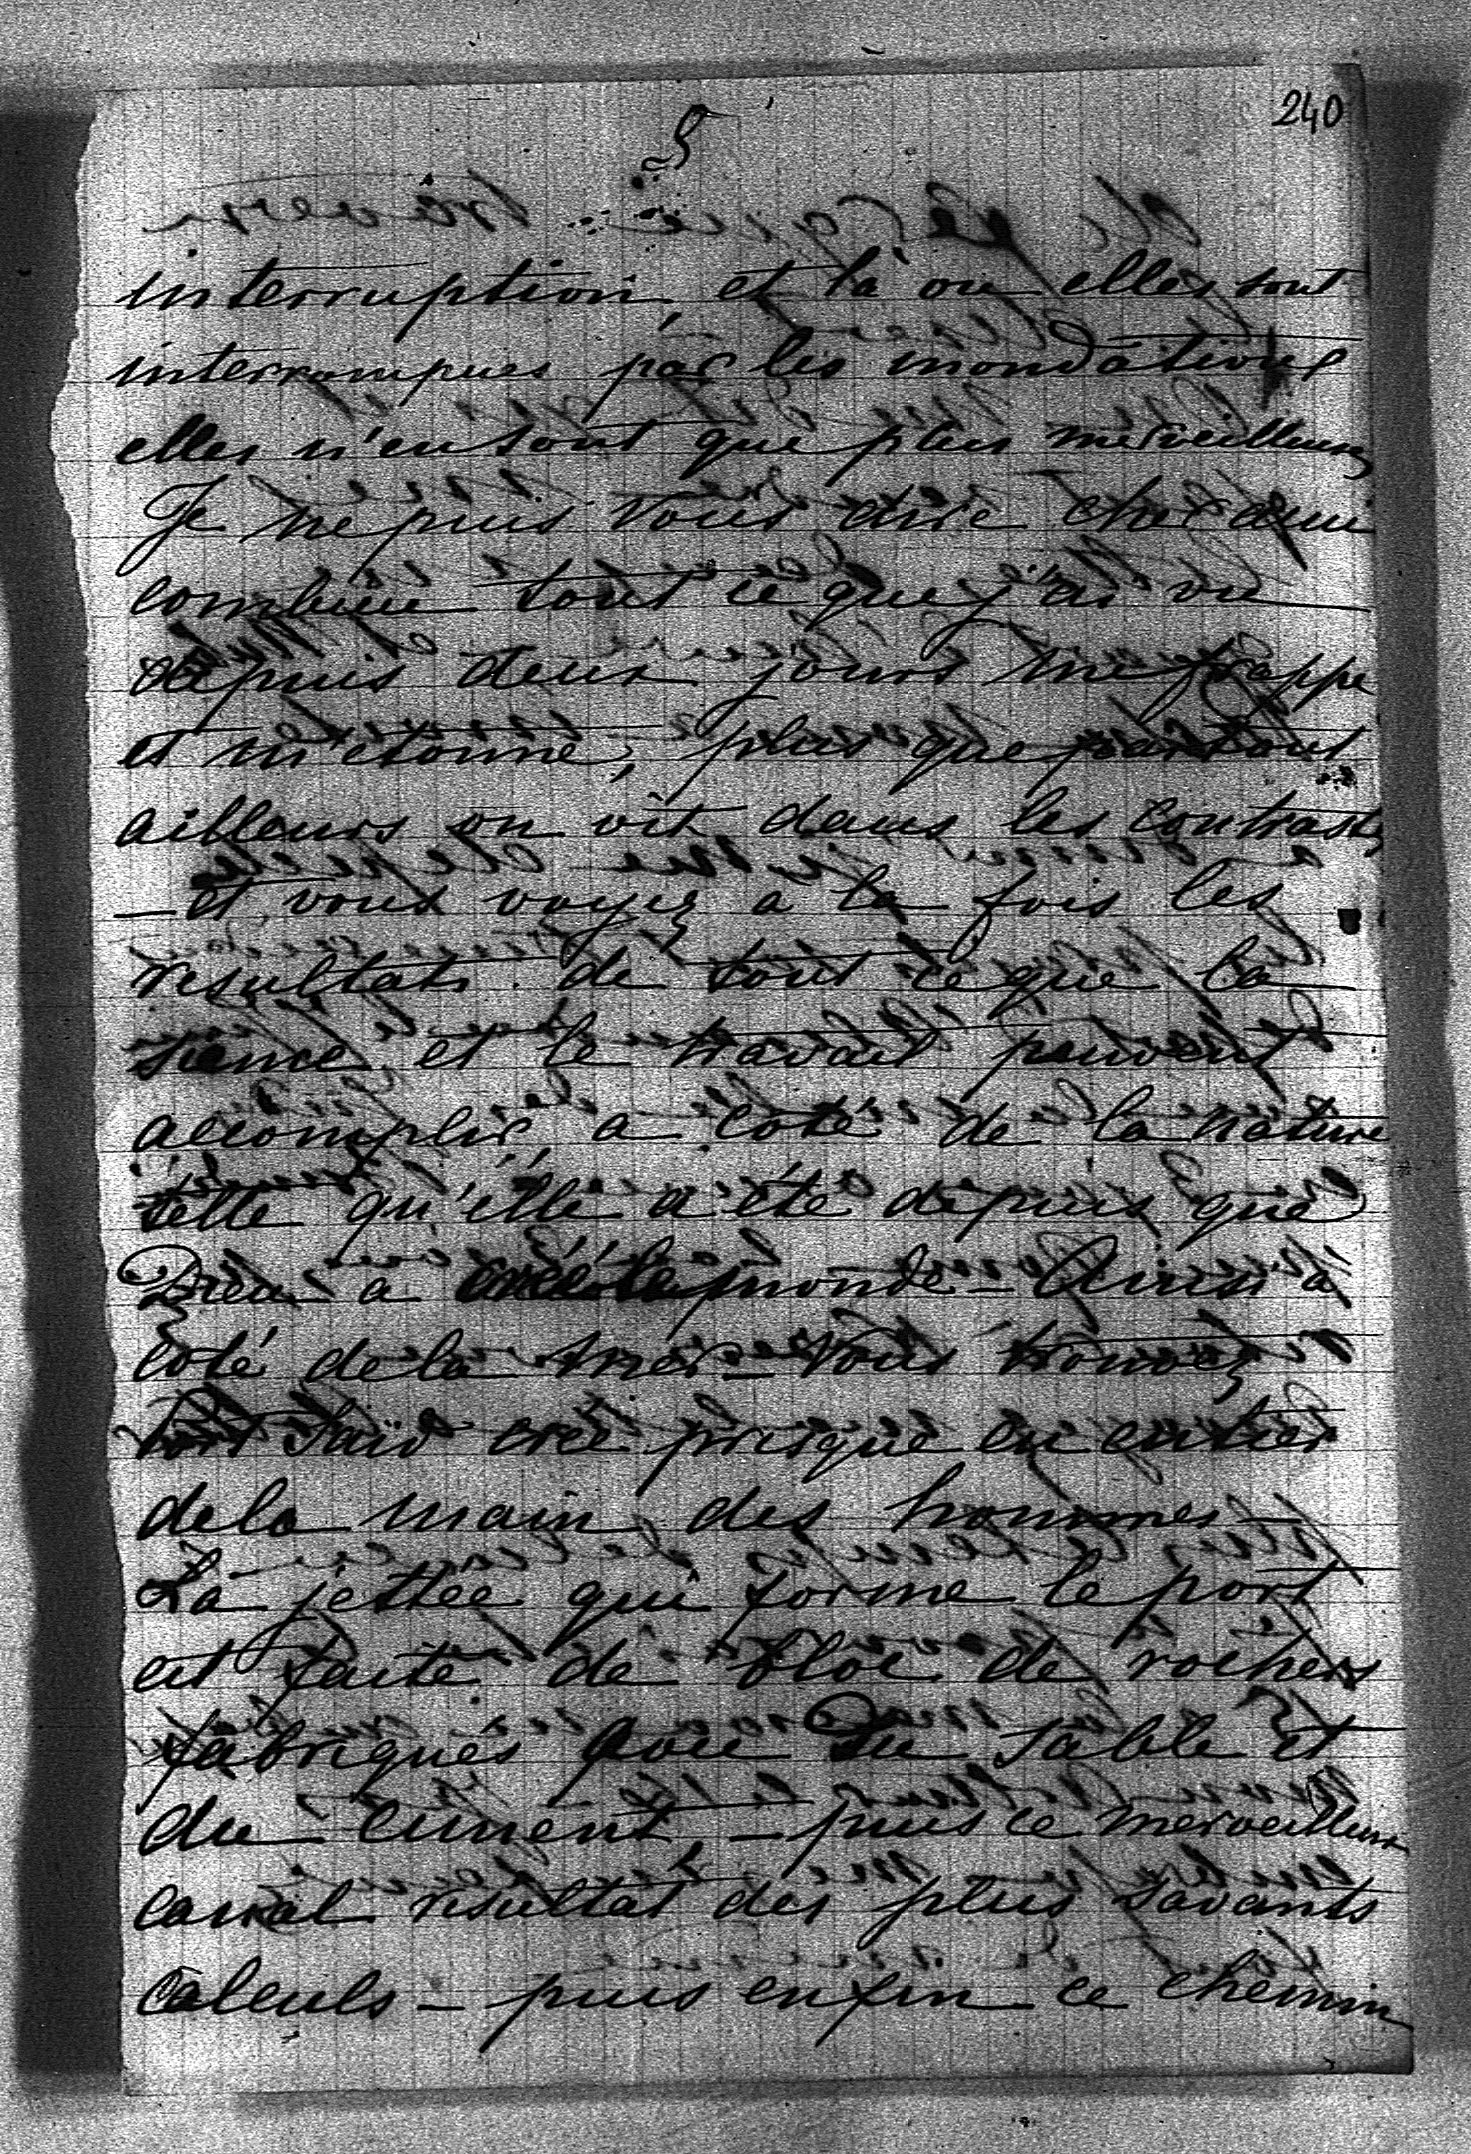 240
5
interruption, et là ou elles sont
interrompues par les inondations
elles n'en sont que plus merveilleuses
Je ne puis vous dire cher ami
combien tout ce que j'ai vu
depuis deux jours me frappe
et m'etonne, plus que partout
ailleurs on vit dans les contrastes
– et vous voyez a la fois les
resultats de tout ce que la
science et le travail peuvent
accomplir a coté de la nature
telle qu'elle a été depuis que
Dieu a créé le monde – Ainsi a
coté de la mer – vous trouvez
Port Saïd créé presque en entier
de la main des hommes –
La jettée qui forme le port
est faite de bloc de rochers
fabriqués avec du sable et
du ciment, – puis ce merveilleux
canal resultat des plus savants
calculs – puis enfin ce chemin